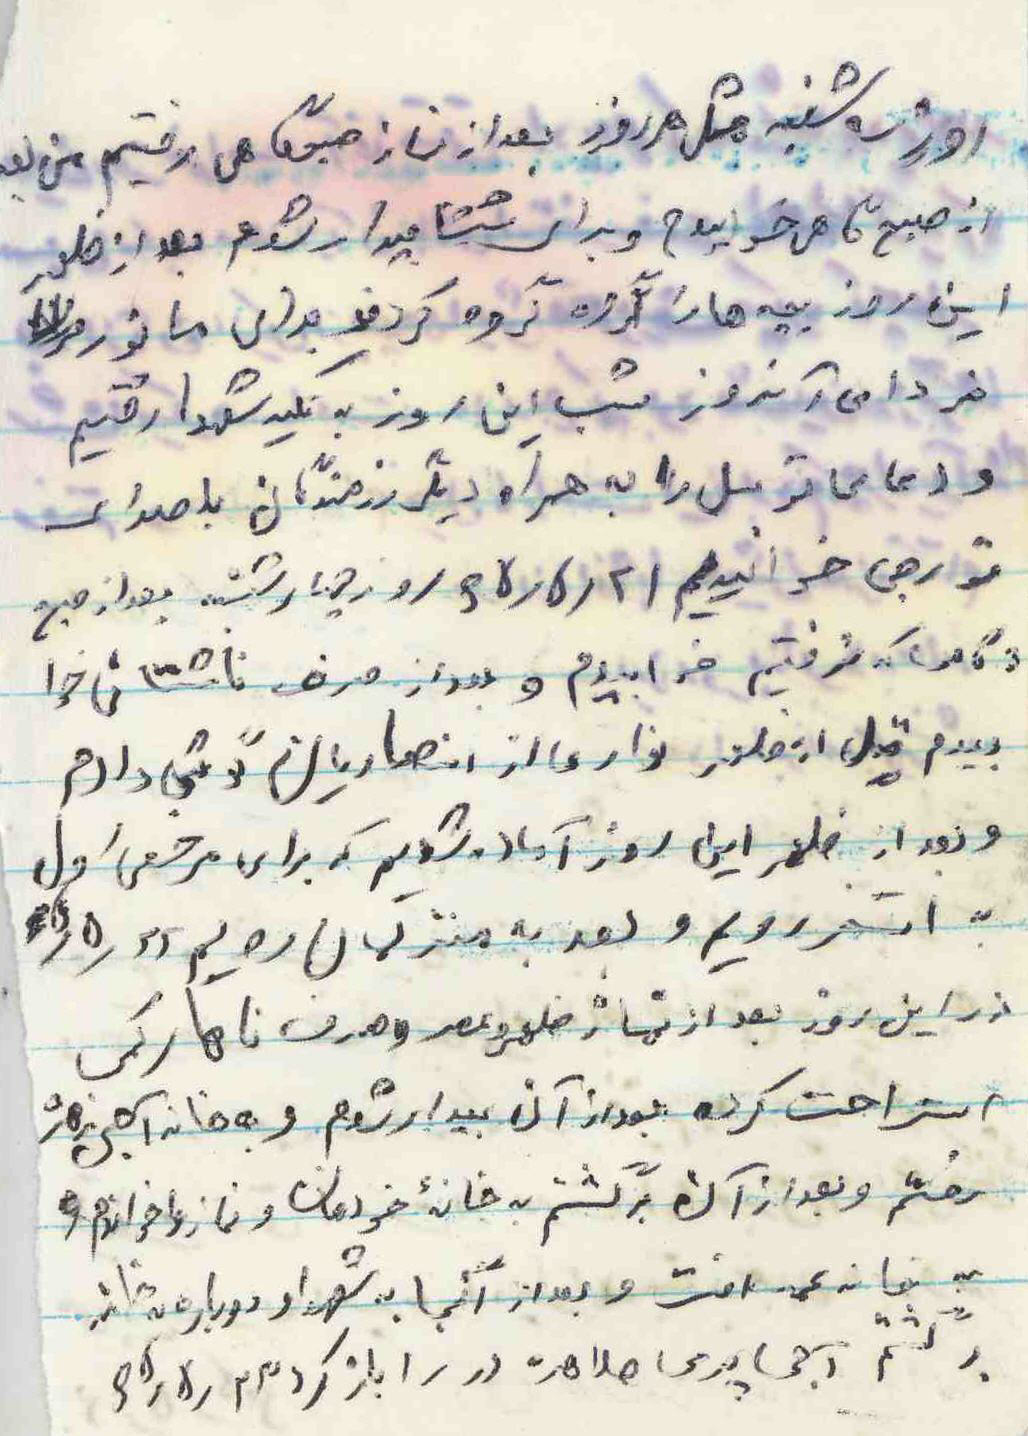 روز سه شنبه مثل هر روز بعد از نماز صبحگاهی رفتیم من بعد
از صبح گاهی خوابیدم و برای بیدار شدم بعد از ظهر
این روز بچه ها را گروه گروه کردند برای مانور
فردا می آن روز شب این روز به تکیه شهدا رفتیم
و دعای توسل را به همراه دیگر رزمندگان با صدای
تورجی خواندیم ۲۱ /۵ /۶۵ روز چهارشنبه بعد از صبح
گاهی که رفتیم خوابیدم و بعد از صرف ناشتائی خوا
بیدم قبل از ظهر نواری از انصاریان گوش دادم
و بعد از ظهر این روز آماده شدیم که برای مرخصی اول
به استخر رویم و بعد به منزلمان رویم ۲۲ /۵ /۶۵
در این روز بعد از نماز ظهر و عصر و صرف ناهار کمی
استراحت کرده بعد از آن بیدار شدم و به خانه آبجی زهرا
رفتم و بعد از آن برگشتم به خانهٔ خودمان و نماز را خواندم و
به خانه عمه رفت و بعد از آنجا به شهدا و دوباره به خانه
برگشتم آبجی پری طاهره در را باز کرد ۲۳ /۵ /۶۵